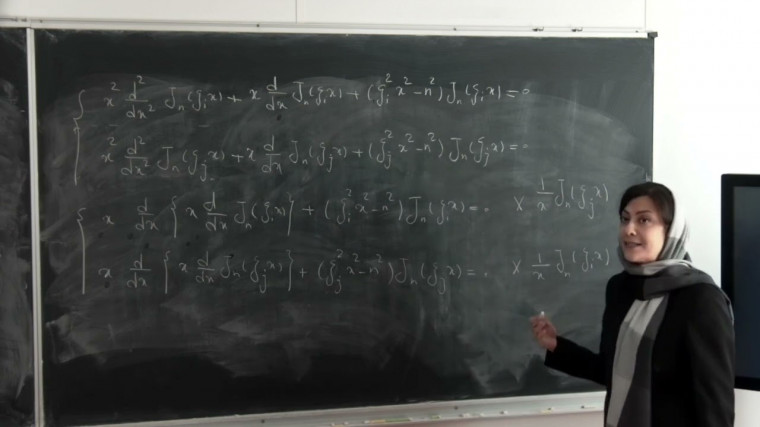 x² d²/dx² Jₙ(ξᵢx) + x d/dx Jₙ(ξᵢx) + (ξᵢ²x² − n²) Jₙ(ξᵢx) = 0
x² d²/dx² Jₙ(ξⱼx) + x d/dx Jₙ(ξⱼx) + (ξⱼ²x² − n²) Jₙ(ξⱼx) = 0
x d/dx { x d/dx Jₙ(ξᵢx) } + (ξᵢ²x² − n²) Jₙ(ξᵢx) = 0 × 1/x Jₙ(ξⱼx)
x d/dx { x d/dx Jₙ(ξⱼx) } + (ξⱼ²x² − n²) Jₙ(ξⱼx) = 0 × 1/x Jₙ(ξᵢx)